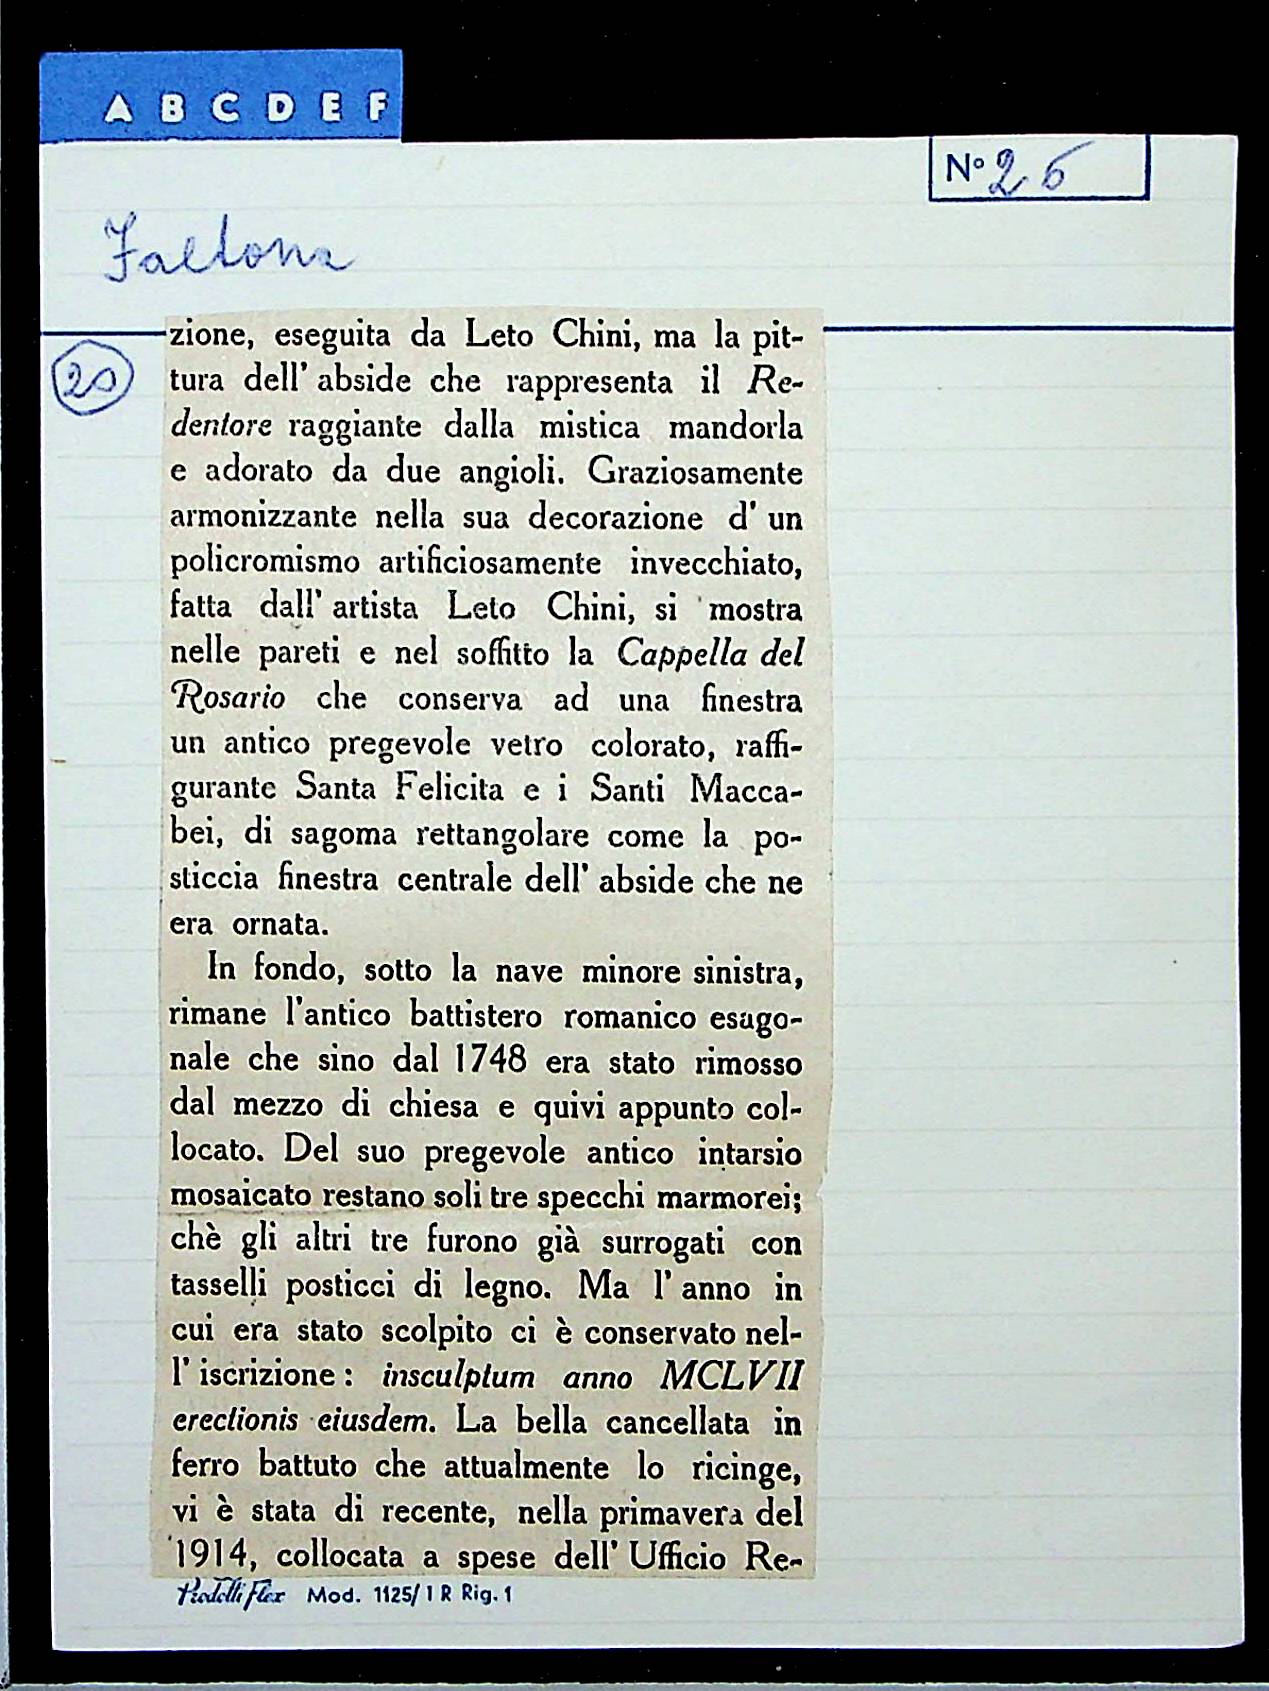 A B C D E F
N° 26
Faltona
20
zione, eseguita da Leto Chini, ma la pit-
tura dell' abside che rappresenta il Re-
dentore raggiante dalla mistica mandorla
e adorato da due angioli. Graziosamente
armonizzante nella sua decorazione d' un
policromismo artificiosamente invecchiato,
fatta dall' artista Leto Chini, si mostra
nelle pareti e nel soffitto la Cappella del
Rosario che conserva ad una finestra
un antico pregevole vetro colorato, raffi-
gurante Santa Felicita e i Santi Macca-
bei, di sagoma rettangolare come la po-
sticcia finestra centrale dell' abside che ne
era ornata.
In fondo, sotto la nave minore sinistra,
rimane l'antico battistero romanico esago-
nale che sino dal 1748 era stato rimosso
dal mezzo di chiesa e quivi appunto col-
locato. Del suo pregevole antico intarsio
mosaicato restano soli tre specchi marmorei;
chè gli altri tre furono già surrogati con
tasselli posticci di legno. Ma l' anno in
cui era stato scolpito ci è conservato nel-
l' iscrizione : insculptum anno MCLVII
erectionis eiusdem. La bella cancellata in
ferro battuto che attualmente lo ricinge,
vi è stata di recente, nella primavera del
1914, collocata a spese dell' Ufficio Re-
Mod. 1125/1 R Rig. 1